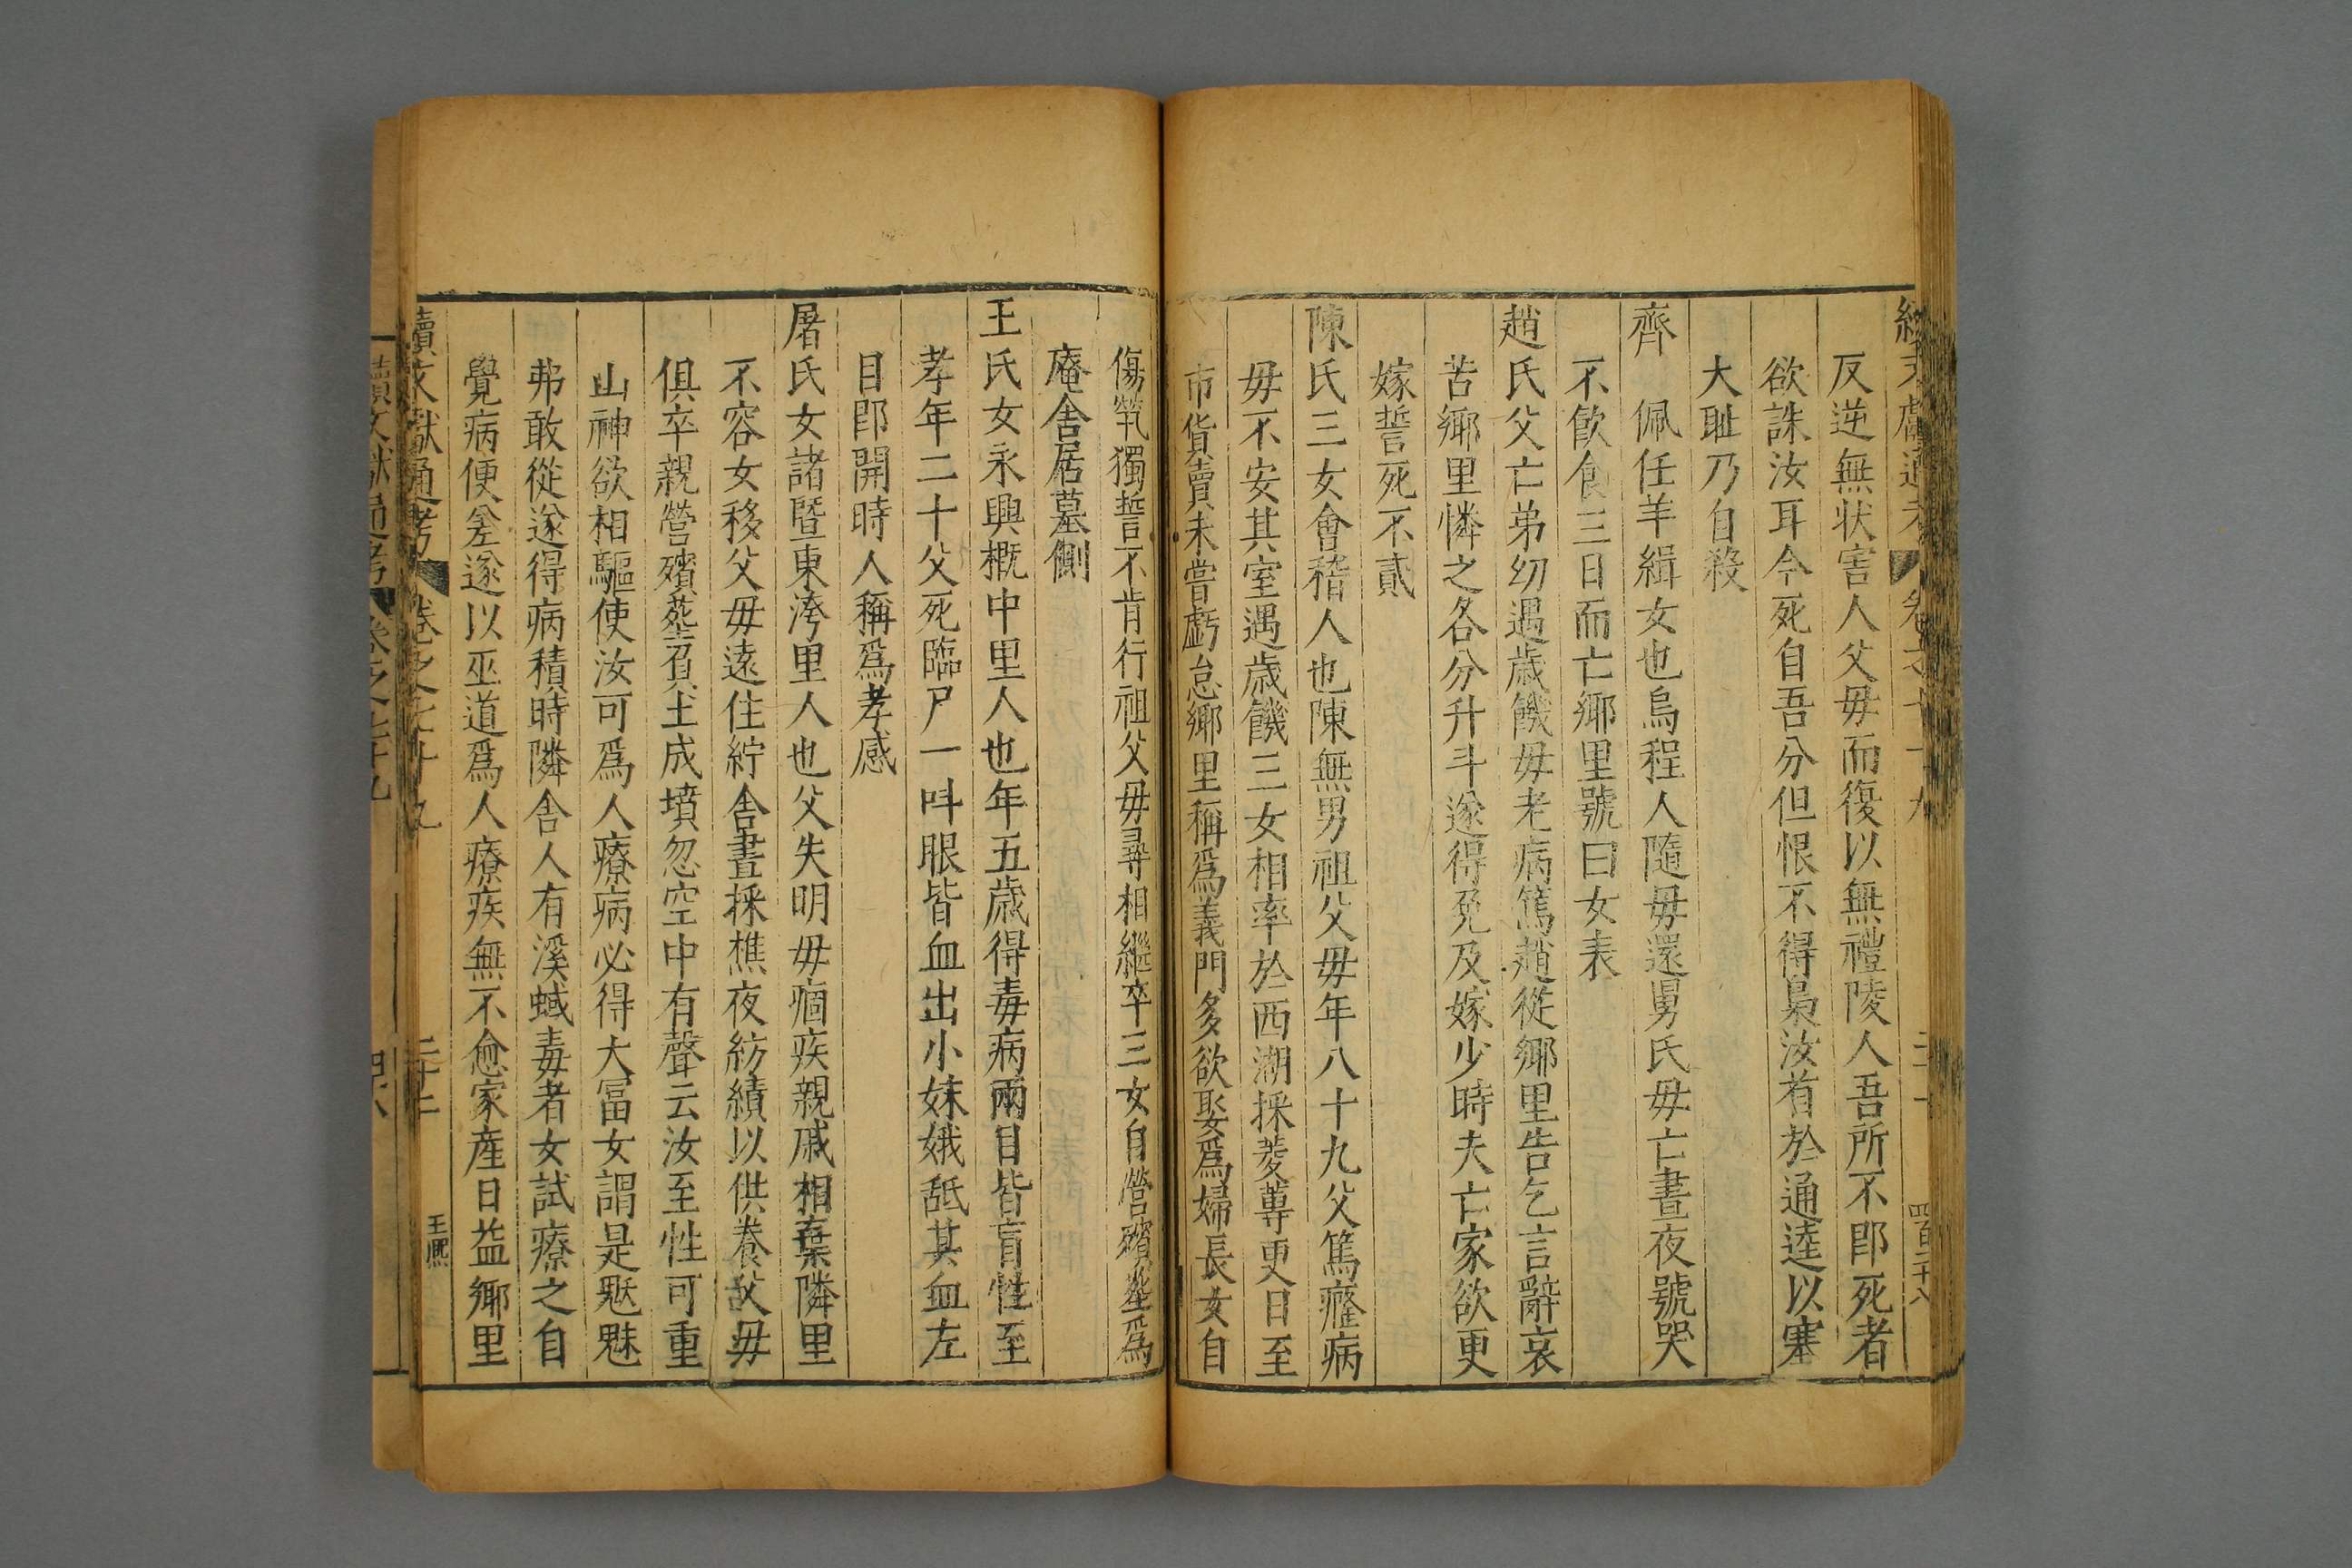 反逆無状害人父毋而復以無禮陵人吾所不即死者
欲誅汝耳今死自吾分但恨不得梟汝首於通逵以塞
大耻乃自殺
齊
佩任羊緝女也烏程人隨毋還舅氏毋亡晝夜號哭
不飲食三日而亡鄉里號曰女表
趙氏父亡弟幼遇歲饑毋老病篤趙從鄉里告乞言辭哀
苦鄉里憐之各分升斗遂得免及嫁少時夫亡家欲更
嫁誓死不貳
陳氏三女會稽人也陳無男祖父毋年八十九父篤癃病
毋不安其室遇歲饑三女相率於西湖採菱蓴更日至
市貨賣未嘗虧怠鄉里稱為義門多欲娶為婦長女自
傷煢獨誓不肯行祖父毋尋相繼卒三女自營殯塟為
庵舍居墓側
王氏女永興概中里人也年五歲得毒病兩目皆盲性至
孝年二十父死臨尸一呌眼皆血出小妹娥舐其血左
目即開時人稱為孝感
屠氏女諸暨東洿里人也父失明毋痼疾親戚相棄隣里
不容女移父毋遠住紵舍晝採樵夜紡績以供養父毋
俱卒親營殯塟負土成墳忽空中有聲云汝至性可重
山神欲相驅使汝可為人療病必得大冨女謂是魃魅
弗敢從遂得病積時隣舍人有溪蜮毒者女試療之自
覺病便差遂以巫道為人療疾無不愈家産日益鄉里
續文獻通考 卷之七十九 二十二 王熈